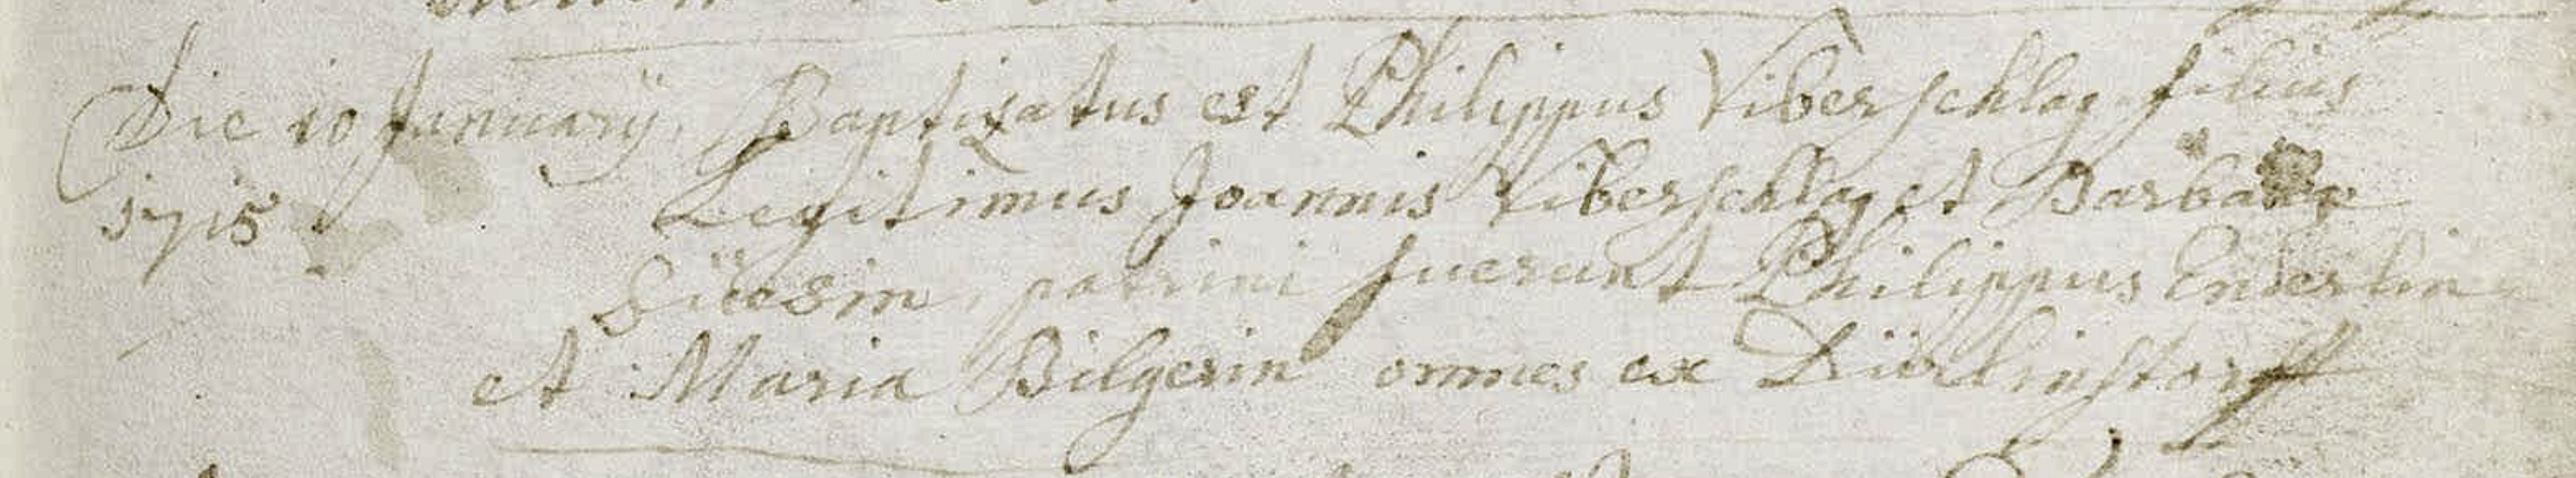 Die 10 Januarÿ Baptizatus est Philippus Viberschlag filius
1715 Legitimus Joannis Viberschlag et Barbara
Süesin, patrini fuerunt Philippus Enderlin
et Maria Bilgerin omnes ex Dürlinstorff